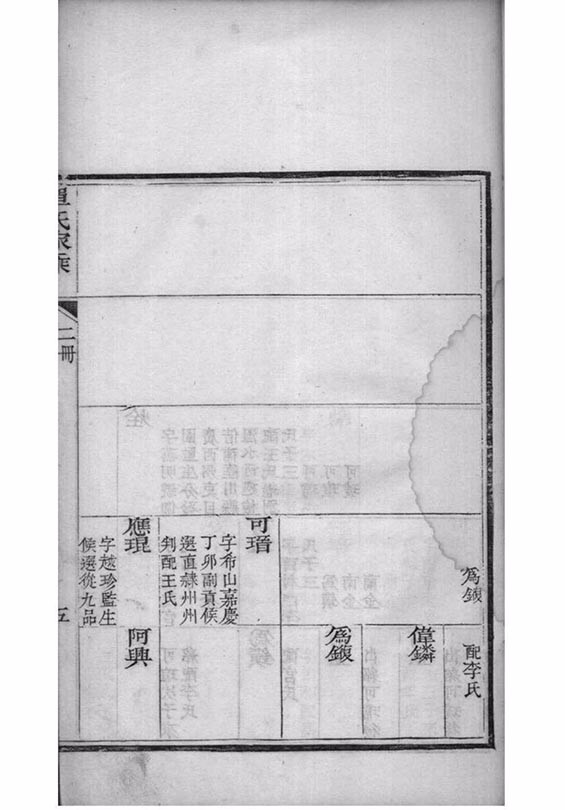 為鍑
配李氏
可瑨
字希山嘉慶
丁卯副貢候
選直隸州州
判配王氏
應琨
字越珍監生
候選從九品
偉鏻
為鍑
阿興
氏家乘
二冊
五